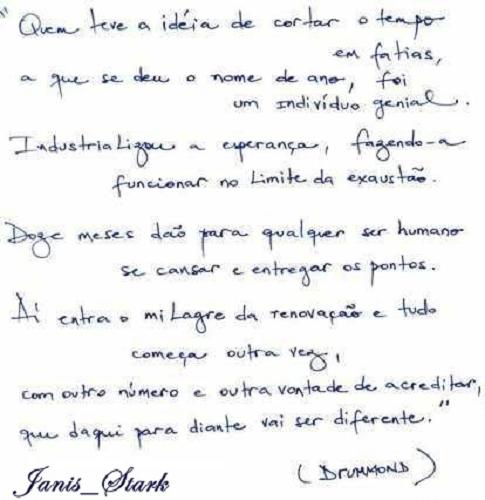 "Quem teve a idéia de cortar o tempo
em fatias,
a que se deu o nome de ano, foi
um indivíduo genial.
Industrializou a esperança, fazendo-a
funcionar no limite da exaustão.
Doze meses dão para qualquer ser humano
se cansar e entregar os pontos.
Aí entra o milagre da renovação e tudo
começa outra vez,
com outro número e outra vontade de acreditar,
que daqui para diante vai ser diferente."
(DRUMMOND)
Janis_Stark